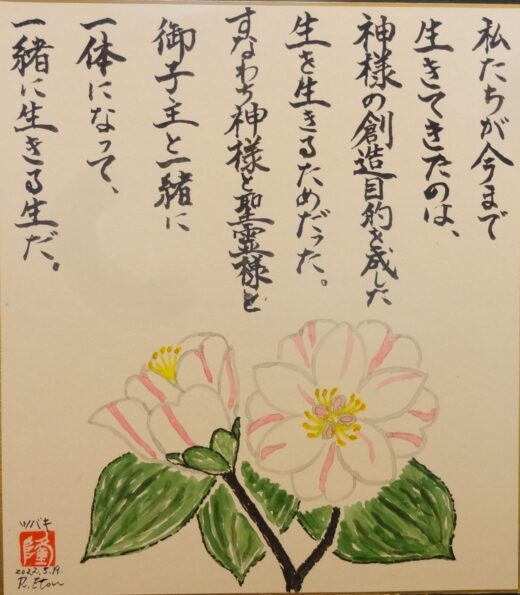 私たちが今まで
生きてきたのは、
神様の創造目的を成した
生を生きるためだった。
すなわち神様と聖霊様と
御子主と一緒に
一体になって、
一緒に生きる生だ。
ツバキ
隆
2022.5.19.
R. Etou